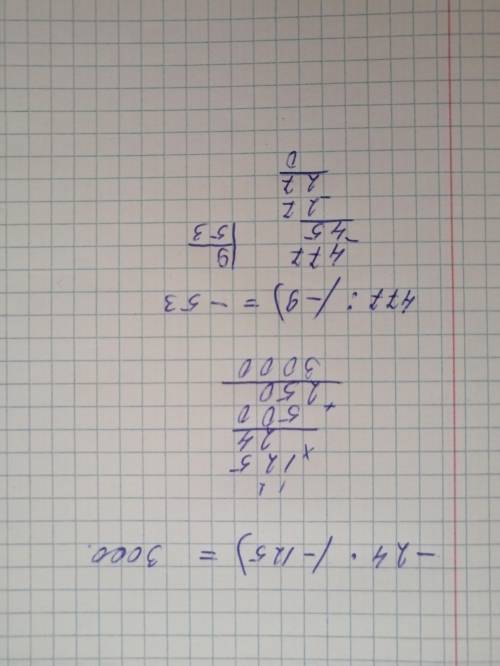 -24 · (-125) = 3000.
1 2
× 125
24
+ 500
250
3000
477 : (-9) = -53
- 477 | 9
45 | 53
- 27
27
0